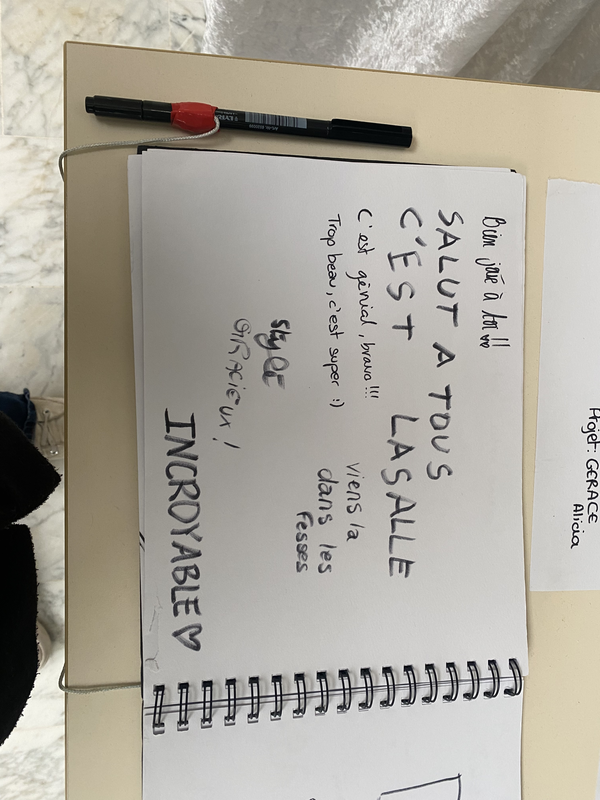 Bien joué à toi !! ♡♡
SALUT A TOUS
C'EST LASALLE
C'est génial, bravo !!!
Trop beau, c'est super :)
viens la
dans les
Fesses
style
INCROYABLE ♡
Projet: GERACE
Alicia